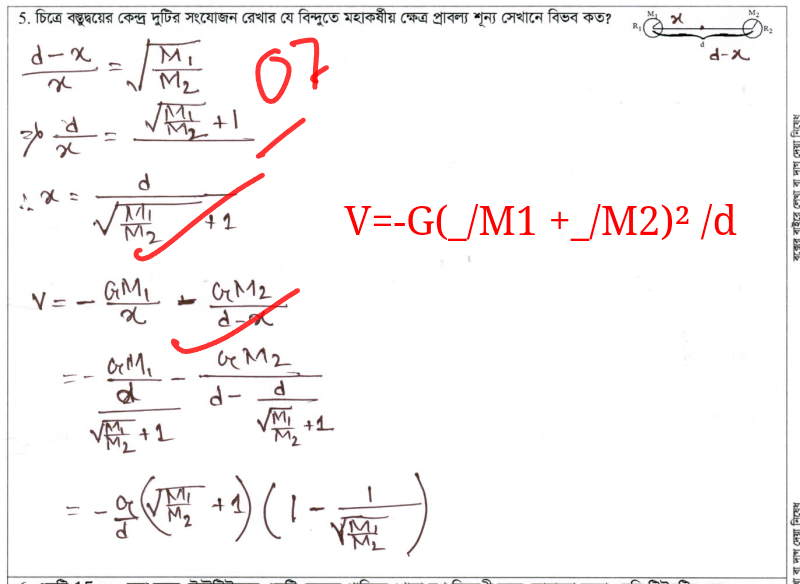 5. চিত্রে বস্তুদ্বয়ের কেন্দ্র দুটির সংযোজন রেখার যে বিন্দুতে মহাকর্ষীয় ক্ষেত্র প্রাবল্য শূন্য সেখানে বিভব কত?
M₁ x M₂
R₁ R₂
d
d-x
(d-x)/x = √(M₁/M₂)
07
⇒ d/x = √(M₁/M₂) + 1
∴ x = d/(√(M₁/M₂) + 1)
V=-G(_/M1 +_/M2)² /d
V = - GM₁/x - GM₂/(d-x)
= - GM₁/(d/(√(M₁/M₂) + 1)) - GM₂/(d - d/(√(M₁/M₂) + 1))
= - G/d (√(M₁/M₂) + 1) (1 - 1/√(M₁/M₂))
বক্সের বাইরে লেখা বা দাগ দেয়া নিষেধ
বা দাগ দেয়া নিষেধ